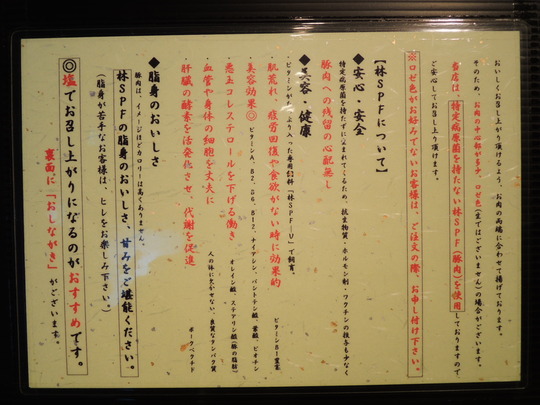 おいしくお召し上がり頂けるよう、お肉の両端に合わせて揚げております。
そのため、お肉の中心部が多少、ロゼ色(生ではございません)の場合がございます。
当店は、特定病原菌を持たない林SPF(豚肉)を使用しておりますので、
ご安心してお召し上り頂けます。
※ロゼ色がお好みでないお客様は、ご注文の際、お申し付け下さい。
【林SPFについて】
◆安心・安全
特定病原菌を持たずに生まれてくるため、抗生物質・ホルモン剤・ワクチンの投与も少なく
豚肉への残留の心配無し
◆美容・健康
ビタミンEがたっぷり入った専用飼料「林SPF-U」で飼育。
肌荒れ、疲労回復や食欲がない時に効果的 ビタミンB1豊富
美容効果◎ ビタミンA、B2、B6、B12、ナイアシン、パントテン酸、葉酸、ビオチン
悪玉コレステロールを下げる働き オレイン酸、ステアリン酸(豚の脂肪)
血管や身体の細胞を丈夫に 人の体に欠かせない、良質なタンパク質
肝臓の酵素を活発化させ、代謝を促進 ポークペプチド
◆脂身のおいしさ
豚肉は、イメージほどカロリーは高くありません。
林SPFの脂身のおいしさ、甘みをご堪能ください。
(脂身が苦手なお客様は、ヒレをお楽しみ下さい。)
◎塩でお召し上がりになるのがおすすめです。
裏面に「おしながき」がございます。